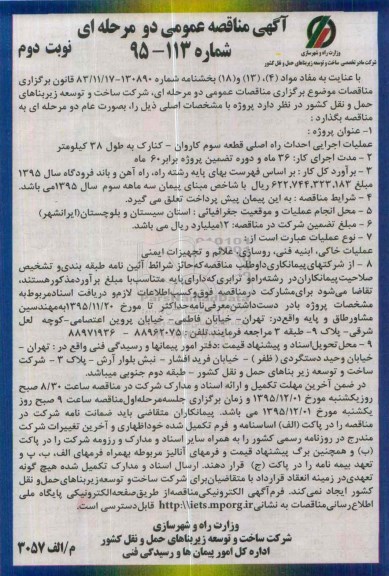 آگهی مناقصه عمومی دو مرحله ای
شماره ۱۱۳- ۹۵
نوبت دوم
وزارت راه و شهرسازی
شرکت مادر تخصصی ساخت و توسعه زیربناهای حمل و نقل کشور
با عنایت به مفاد مواد (۴)، (۱۳) و (۱۸) بخشنامه شماره ۱۳۰۸۹۰-۸۳/۱۱/۱۷ قانون برگزاری
مناقصات موضوع برگزاری مناقصات عمومی دو مرحله ای، شرکت ساخت و توسعه زیربناهای
حمل و نقل کشور در نظر دارد پروژه با مشخصات اصلی ذیل را، بصورت عام دو مرحله ای به
مناقصه بگذارد :
۱- عنوان پروژه :
عملیات اجرایی احداث راه اصلی قطعه سوم کاروان - کنارک به طول ۳۸ کیلومتر
۲- مدت اجرای کار: ۳۶ ماه و دوره تضمین پروژه برابر ۶۰ ماه
۳- برآورد کل کار: بر اساس فهرست بهای پایه رشته راه، راه آهن و باند فرودگاه سال ۱۳۹۵
مبلغ ۶۲۲,۷۴۴,۳۲۳,۱۸۳ ریال با شاخص مبنای پیمان سه ماهه سوم سال ۱۳۹۵ می باشد.
۴- شرایط مناقصه : به این پیمان پیش پرداخت تعلق می گیرد.
۵- محل انجام عملیات و موقعیت جغرافیائی : استان سیستان و بلوچستان (ایرانشهر)
۶- مبلغ تضمین شرکت در مناقصه: ۱۲میلیارد ریال می باشد.
۷- نوع عملیات عبارت است از:
عملیات خاکی، ابنیه فنی، روسازی، علائم و تجهیزات ایمنی
۸ - از شرکتهای پیمانکاری داوطلب مناقصه که حائز شرائط آئین نامه طبقه بندی و تشخیص
صلاحیت پیمانکاران در رشته راه و ترابری که دارای پایه متناسب با مبلغ برآورد مذکور هستند،
تقاضا می شود برای مشارکت در مناقصه فوق و کسب اطلاعات لازم و دریافت اسناد مربوط به
مشخصات پروژه با در دست داشتن معرفی نامه حداکثر تا مورخ ۱۳۹۵/۱۱/۲۰ به مهندسین
مشاور طاق و پایه واقع در: تهران- خیابان فاطمی- خیابان پروین اعتصامی- کوچه لعل
شرقی- پلاک ۹- طبقه ۳ مراجعه فرمایند. تلفن: ۷۵-۸۸۹۶۲۰ ۸۸۹۷۱۹۳۶
۹ - محل تحویل اسناد و پیشنهاد قیمت :دفتر امور پیمانها و رسیدگی فنی واقع در : تهران -
خیابان وحید دستگردی ( ظفر ) - خیابان فرید افشار - نبش بلوار آرش - پلاک ۳ - شرکت
ساخت و توسعه زیر بنای حمل و نقل کشور - طبقه دوم جنوبی میباشد.
در ضمن آخرین مهلت تکمیل و ارائه اسناد و مدارک شرکت در مناقصه ساعت ۸/۳۰ صبح
روز یکشنبه مورخ ۱۳۹۵/۱۲/۰۱ و زمان برگزاری جلسه مرحله اول مناقصه ساعت ۹ صبح روز
یکشنبه مورخ ۱۳۹۵/۱۲/۰۱ می باشد. پیمانکاران متقاضی باید ضمانت نامه شرکت در
مناقصه را در پاکت (الف) اساسنامه و فرم تکمیل شده خود اظهاری و آخرین تغییرات شرکت
مندرج در روزنامه رسمی کشور را به همراه سایر اسناد و مدارک و رزومه شرکت را در پاکت
(ب) و همچنین برگ پیشنهاد قیمت و فرمهای آنالیز مربوطه بهمراه فرمهای الف، ب، پ و
تعهد بیمه نامه را در پاکت (ج) قرار دهند. ارسال اسناد و مدارک تکمیل شده هیچ گونه
تعهدی در زمینه انعقاد قرارداد با متقاضیان برای شرکت ساخت و توسعه زیربناهای حمل و نقل
کشور ایجاد نمی کند. فرم آگهی الکترونیکی مناقصه از طریق صفحه الکترونیکی پایگاه ملی
اطلاع رسانی مناقصات به نشانی http://iets.mporg.ir قابل دسترسی است.
وزارت راه و شهرسازی
شرکت ساخت و توسعه زیربناهای حمل و نقل کشور
اداره کل امور پیمان ها و رسیدگی فنی
م/الف ۳۰۵۷